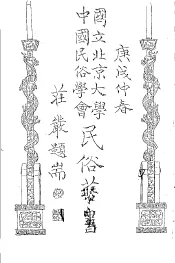 庚戌仲春
國立北京大學
中國民俗學會
民俗叢書
莊嚴題耑